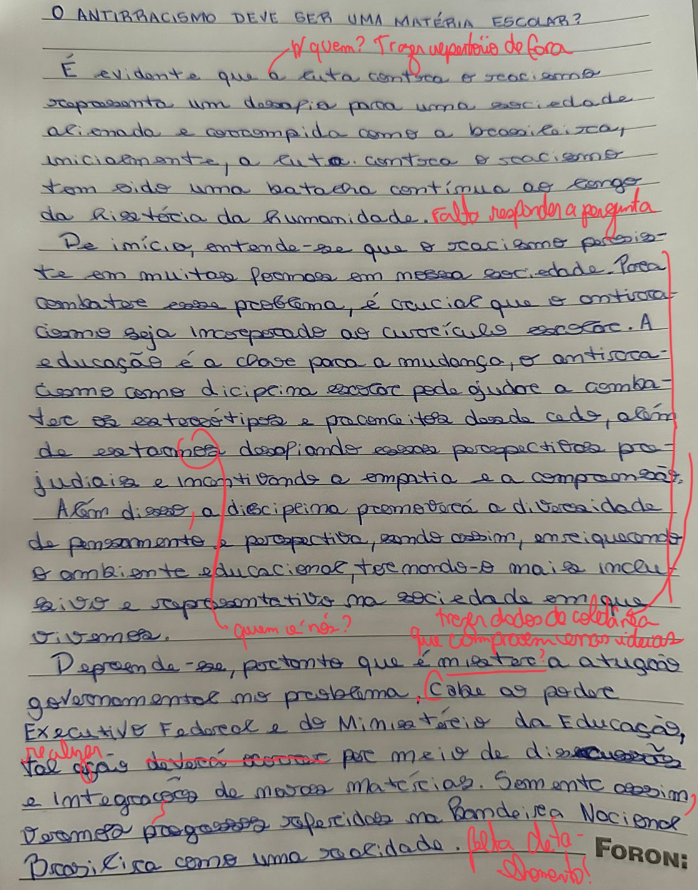 O ANTIRRACISMO DEVE SER UMA MATÉRIA ESCOLAR?
p/ quem? Trazer repertório de fora
É evidente que a luta contra o racismo
representa um desafio para uma sociedade
alienada e corrompida como a brasileira,
inicialmente, a luta contra o racismo
tem sido uma batalha contínua ao longo
da história da humanidade. Falto responder a pergunta
De início, entende-se que o racismo persis-
te em muitas formas em nossa sociedade. Para
combater esse problema, é crucial que o antirra-
cismo seja incorporado ao currículo escolar. A
educação é a chave para a mudança, o antirra-
cismo como diciplina escolar pode ajudar a comba-
ter os estereótipos e preconceitos desde cedo, além
de estarmos desafiando essas perspectivas pre-
judiais e incentivando a empatia e a compreensão.
Além disso, a disciplina promoverá a diversidade
de pensamento e perspectiva, sendo assim, enriquecendo
o ambiente educacional, tornando-o mais inclu-
sivo e representativo na sociedade em que
vivemos. quem é nós? trazer dados da coletânea
que comprovem essas ideias
Depreende-se, portanto que é mister? a atuação
governamental no problema. Cabe ao poder
Executivo Federal e do Ministério da Educação,
realizar
tal ação deverá ocorrer por meio de discussões
e integração de novas matérias. Somente assim,
veremos progresso referidos na Bandeira Nacional
Brasilira como uma realidade. falta deta-
lhamento!
FORONI